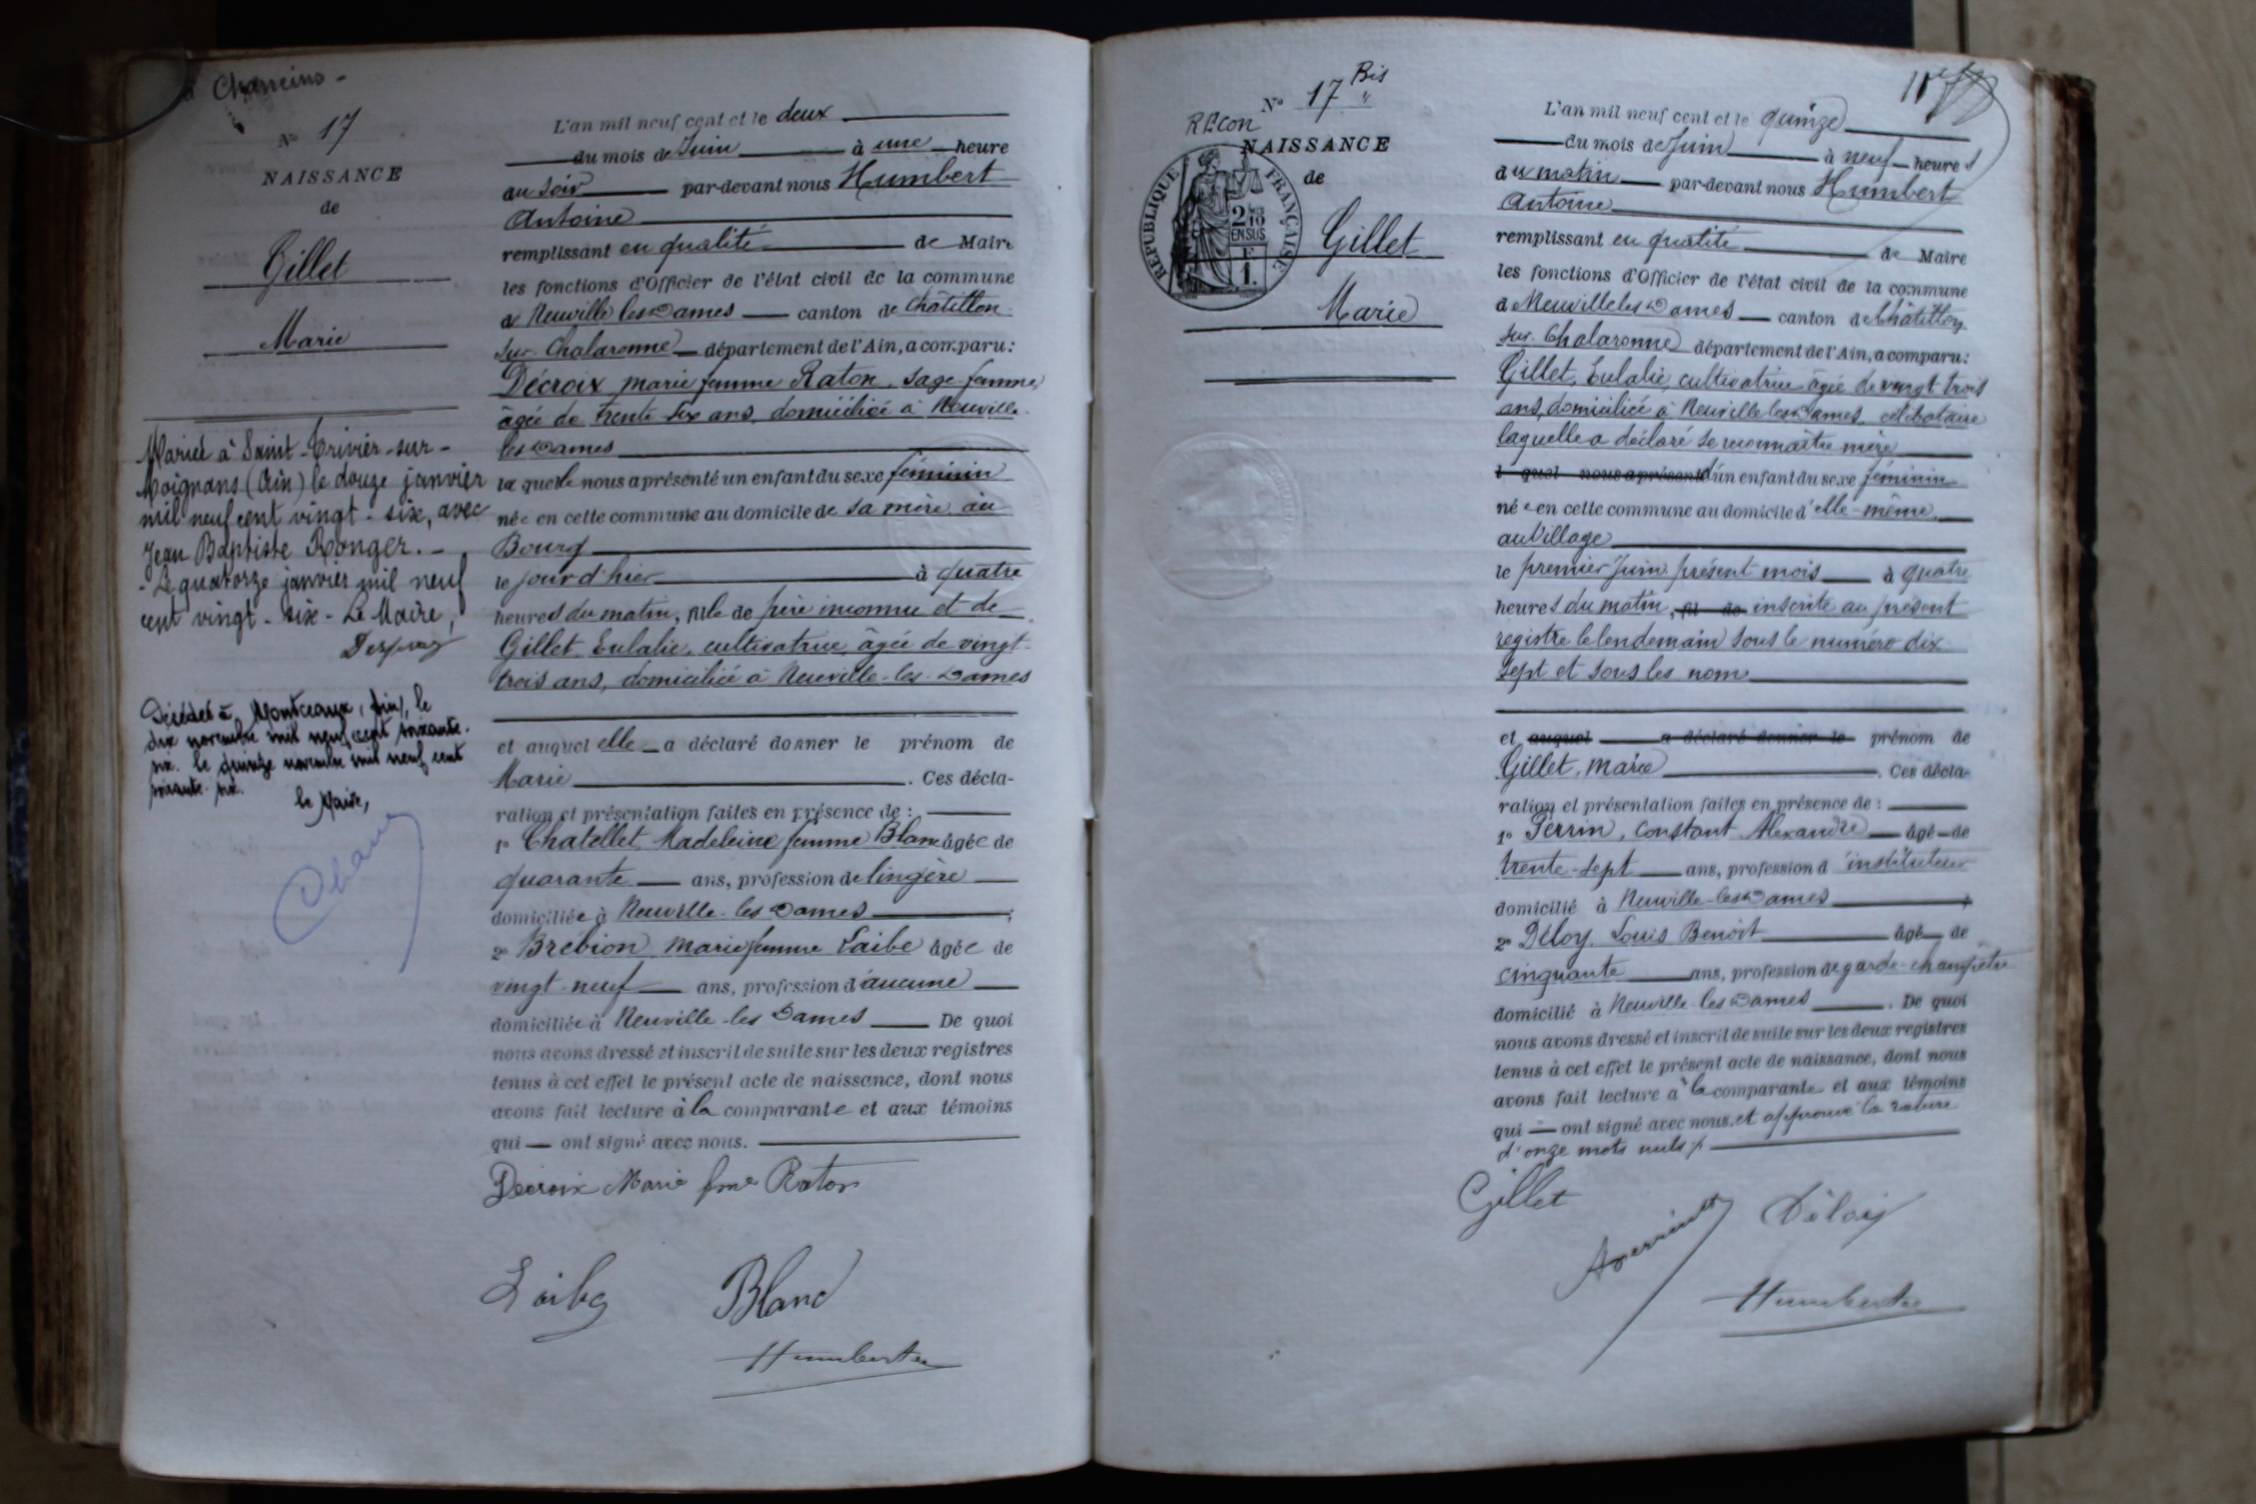 à Chaneins -
N° 17
NAISSANCE
de
Gillet
Marie
Mariée à Saint-Trivier-sur-
Moignans (Ain) le douze janvier
mil neuf cent vingt-six, avec
Jean Baptiste Ronger. -
- Le quatorze janvier mil neuf
cent vingt-six - Le Maire,
Décédée à Montceaux, (Ain), le
dix novembre mil neuf cent soixante-
six. le quinze novembre mil neuf cent
soixante-six.
le Maire,
L'an mil neuf cent et le deux
du mois de Juin à une heure
du soir par-devant nous Humbert
Antoine
remplissant en qualité de Maire
les fonctions d'Officier de l'état civil de la commune
de Neuville les Dames canton de Chatillon
sur Chalaronne département de l'Ain, a comparu:
Décroix marie femme Raton, sage-femme,
âgée de trente six ans, domiciliée à Neuville
les Dames
la quelle nous a présenté un enfant du sexe féminin
née en cette commune au domicile de sa mère, au
Bourg
le jour d'hier à quatre
heures du matin, fille de père inconnu et de
Gillet Eulalie, cultivatrice, âgée de vingt
trois ans, domiciliée à Neuville-les-Dames
et auquel elle a déclaré donner le prénom de
Marie . Ces décla-
ration et présentation faites en présence de :
1° Chatellet Madeleine femme Blanc âgée de
quarante ans, profession de lingère
domiciliée à Neuville-les Dames ;
2° Brébion Marie femme Laibe âgée de
vingt-neuf ans, profession d'aucune
domiciliée à Neuville-les Dames De quoi
nous avons dressé et inscrit de suite sur les deux registres
tenus à cet effet le présent acte de naissance, dont nous
avons fait lecture à la comparante et aux témoins
qui — ont signé avec nous.
Décroix Marie fme Raton
Laibe Blanc
Humbert
N° 17 Bis
RECON
NAISSANCE
de
RÉPUBLIQUE FRANÇAISE
2/10
EN SUS
F
1.
Gillet
Marie
L'an mil neuf cent et le quinze
du mois de Juin à neuf heures
du matin par-devant nous Humbert
Antoine
remplissant en qualité de Maire
les fonctions d'Officier de l'état civil de la commune
de Neuville les Dames canton de Châtillon
sur Chalaronne département de l'Ain, a comparu:
Gillet, Eulalie, cultivatrice âgée de vingt trois
ans, domiciliée à Neuville les Dames, célibataire
laquelle a déclaré se reconnaître mère
l quel nous a présenté d'un enfant du sexe féminin
née en cette commune au domicile d'elle-même,
au Village
le premier Juin présent mois à quatre
heures du matin, fil de inscrite au présent
registre le lendemain sous le numéro dix
sept et sous les nom
et auquel a déclaré donner le prénom de
Gillet, Marie . Ces décla-
ration et présentation faites en présence de :
1° Perrin, Constant Alexandre âgé de
trente-sept ans, profession d'instituteur
domicilié à Neuville-les Dames ;
2° Déloy, Louis Benoit âgé de
cinquante ans, profession de garde-champêtre
domicilié à Neuville-les Dames . De quoi
nous avons dressé et inscrit de suite sur les deux registres
tenus à cet effet le présent acte de naissance, dont nous
avons fait lecture à la comparante et aux témoins
qui — ont signé avec nous. et approuvé la rature
d'onze mots nuls ./.
Gillet
Déloy
Humbert